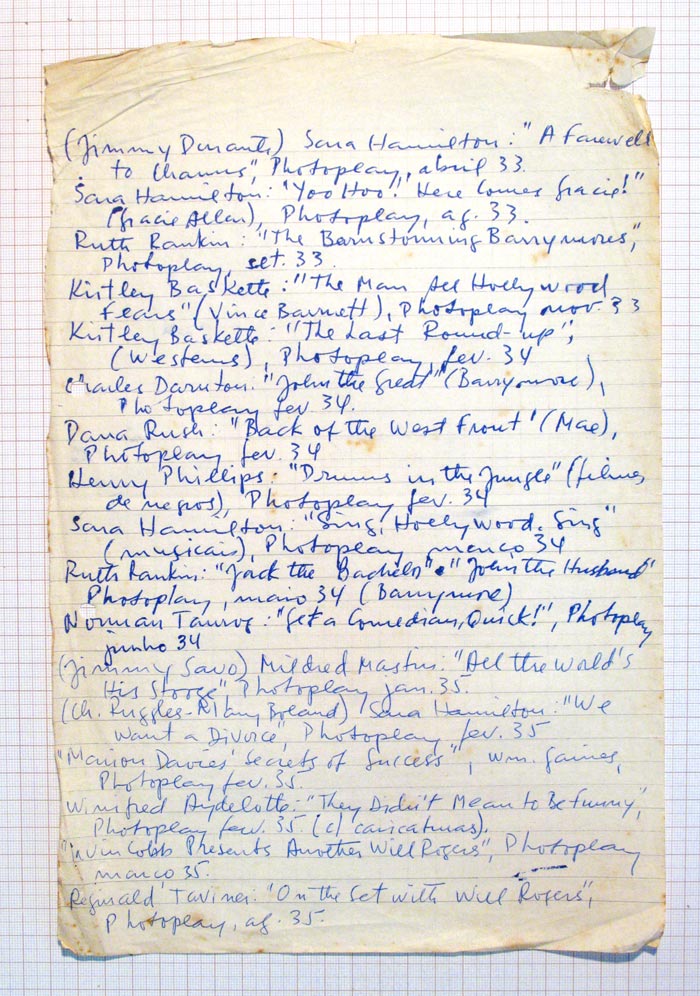 (Jimmy Durante) Sara Hamilton: "A Farewell
to Charms", Photoplay, abril 33.
Sara Hamilton: "Yoo Hoo! Here Comes Gracie!"
(Gracie Allan), Photoplay, ag. 33.
Ruth Rankin: "The Barnstorming Barrymores",
Photoplay, set. 33.
Kirtley Baskette: "The Man All Hollywood
Fears" (Vince Barnett), Photoplay nov. 33
Kirtley Baskette: "The Last Round-up",
(Westerns), Photoplay, fev. 34
Charles Darnton: "John the Great" (Barrymore),
Photoplay fev. 34.
Dana Rush: "Back of the West Front" (Mae),
Photoplay fev. 34
Henry Phillips: "Drums in the Jungle" (filmes
de negros), Photoplay fev. 34
Sara Hamilton: "Sing, Hollywood, Sing"
(musicais), Photoplay, março 34
Ruth Rankin: "Jack the Bachelor" e "John the Husband"
Photoplay, maio 34 (Barrymore)
Norman Taurog: "Get a Comedian, Quick!", Photoplay
junho 34
(Jimmy Savo) Mildred Mastin: "All the World's
His Stooge", Photoplay jan. 35.
(Ch. Ruggles-Mary Boland) Sara Hamilton: "We
Want a Divorce", Photoplay, fev. 35
"Marion Davies' Secrets of Success", Wm. Gaines,
Photoplay fev. 35.
Winifred Aydelotte: "They Didn't Mean to Be Funny",
Photoplay fev. 35. (c/ caricaturas).
"Irvin Cobb Presents Another Will Rogers", Photoplay
março 35.
Reginald Taviner: "On the Set with Will Rogers",
Photoplay, ag. 35.